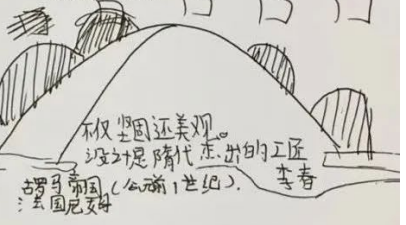 不仅坚固还美观。
设计是隋代杰出的工匠
李春
古罗马帝国(公元前1世纪)。
法国尼姆